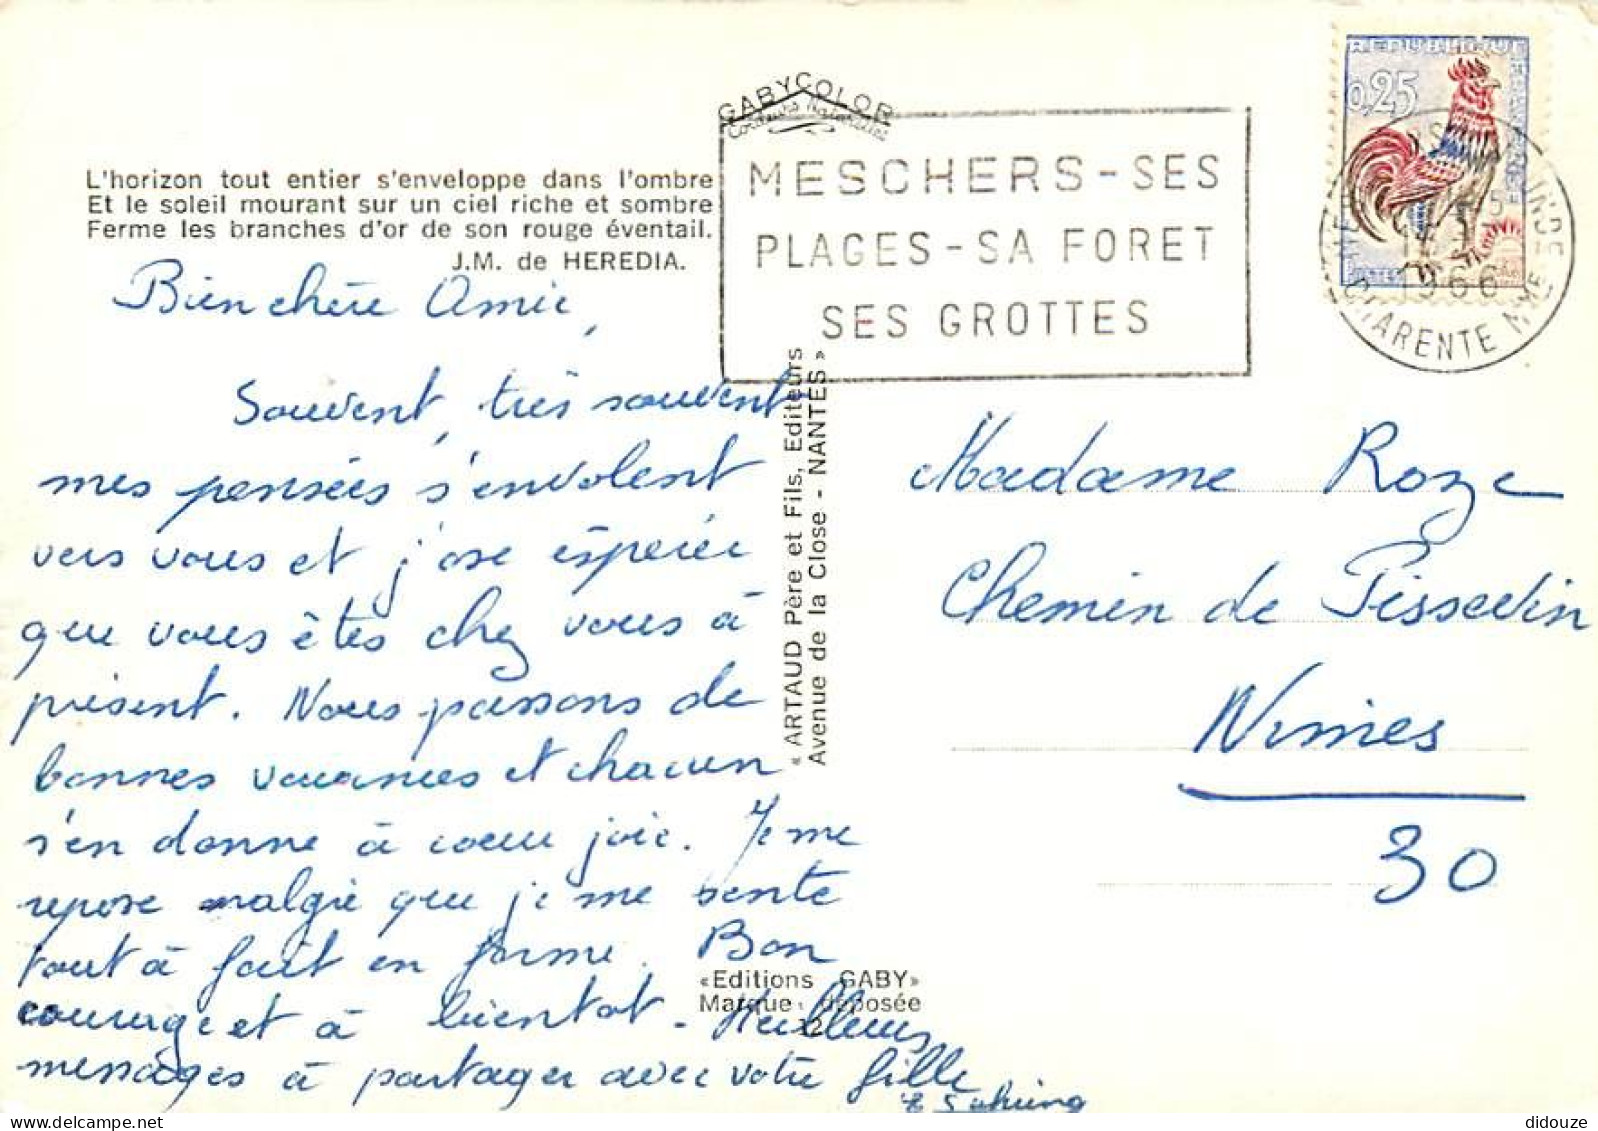 GABYCOLOR
Couleurs Naturelles
L'horizon tout entier s'enveloppe dans l'ombre
Et le soleil mourant sur un ciel riche et sombre
Ferme les branches d'or de son rouge éventail.
J.M. de HEREDIA.
MESCHERS - SES
PLAGES - SA FORET
SES GROTTES
REPUBLIQUE
0,25
1966
CHARENTE MME
Bien chère Amie,
Souvent, très souvent
mes pensées s'envolent
vers vous et j'ose espérer
que vous êtes chez vous à
présent. Nous passons de
bonnes vacances et chacun
s'en donne à coeur joie. Je me
repose malgré que je me sente
tout à fait en forme. Bon
courage et à bientot - Meilleurs
messages à partager avec votre fille
« ARTAUD Père et Fils, Editeurs
Avenue de la Close - NANTES »
«Editions GABY»
Marque déposée
12
Madame Roze
Chemin de Pissevin
Nimes
30
didouze @ delcampe.net